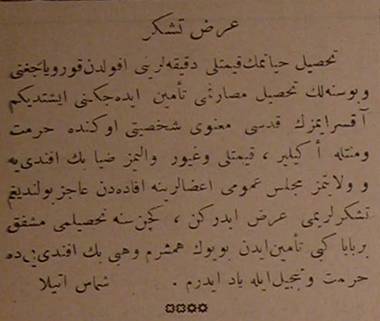 عرض تشكر
تحصیل حیاتمك قیمتلی دقیقه لرینی افولدن قورویاجغنی
و بوسنه لك تحصیل مصارفمی تأمین ایده جكنی ایشتدیكم
آقسرایمزك قدسی معنوی شخصیتی اوكنده حرمت
ومنتله أكیلیر ، قیمتلی وغیور والیمز ضیا بك افندی یه
و ولایتمز مجلس عمومی اعضالرینه افاده دن عاجز بولندیغم
تشكرلریمی عرض ایدركن ، كچن سنه تحصیلمی مشفق
بربابا كبی تأمین ایدن بویوك همشرم وهبی بك افندی یی ده
حرمت و تبجیل ایله یاد ایدرم . شماس اتیلا